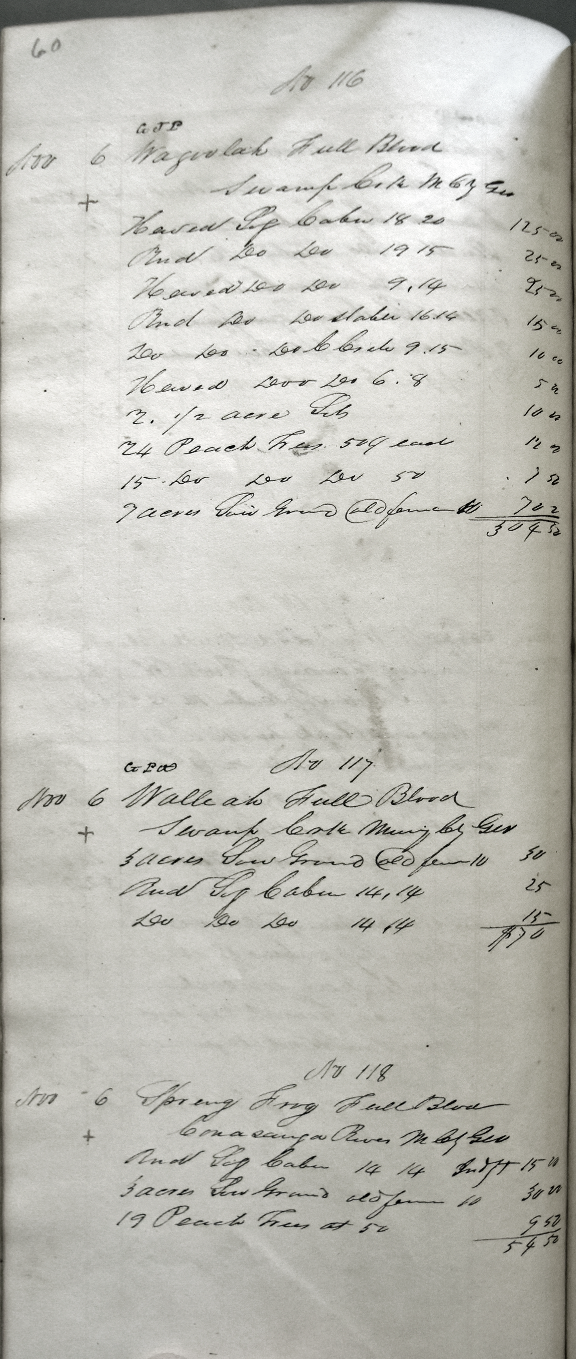 60
No 116
G J P
Nov 6 Wagoolah Full Blood
+ Swamp Crk M Cty Geo
Hewed Log Cabin 18 20 125 00
Rnd Do Do 19 15 25 00
Hewed Do Do 9.14 25 00
Rnd Do Do stable 16 14 15 00
Do Do Do C Crib 9.15 10 00
Hewed Do Do 6.8 5 00
2. 1/2 acre lots 10 00
24 Peach Trees 50¢ each 12 00
15 Do Do Do 50 7 50
7 acres Low Ground old fence 10 70 00
304 50
No 117
Nov 6 Walleah Full Blood
+ Swamp Crk Murry Cty Geo
3 acres Low Ground old fence 10 30
Rnd Log Cabin 14,14 25
Do Do Do 14,14 15
$70
No 118
Nov 6 Spreng Frog Full Blood
+ Conasauga River M Cty Geo
Rnd Log Cabin 14 14 15 00
3 acres Low Ground old fence 10 30 00
19 Peach Trees at 50 9 50
54 50